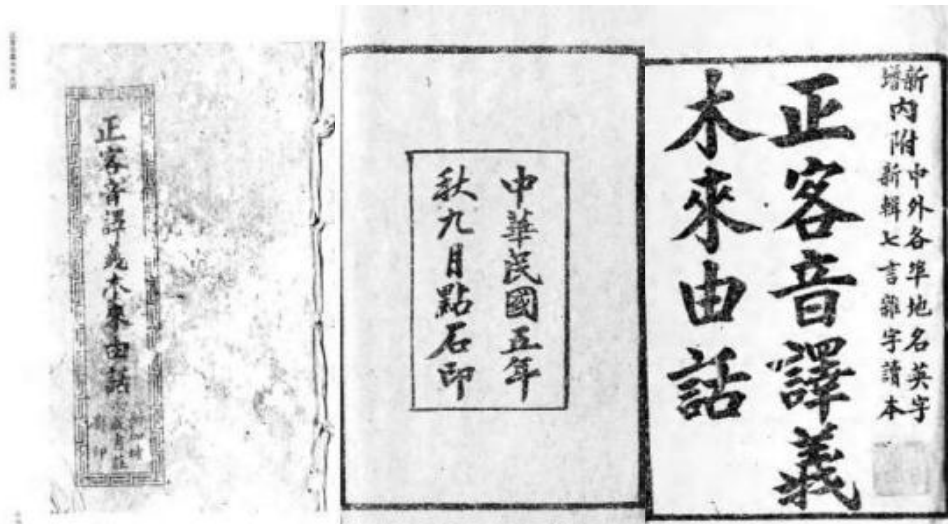 正客音譯義木來由話
中華民國五年
秋九月點石印
新增內附
中外各埠地名英字
新輯七言雜字讀本
正客音譯義
木來由話